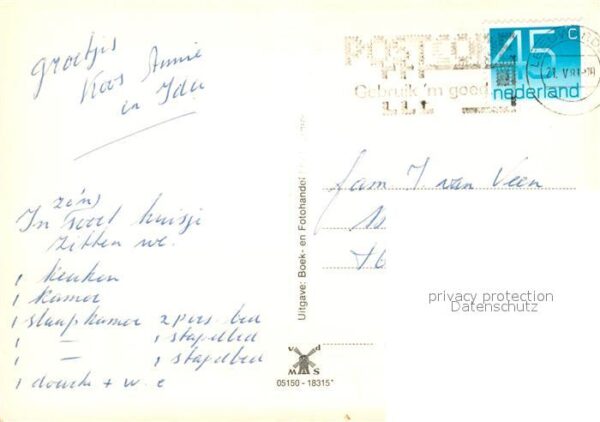 groetjis
Koos Annie
en Ida
zo'n
In soort huisje
zitten we.
1 keuken
1 kamer
1 slaapkamer 2 pers. bed
1 — 1 stapelbed
1 — 1 stapelbed
1 douche + w.c
Uitgave: Boek- en Fotohandel
v d
M S
05150 - 18315*
POSTCODE
Gebruik 'm goed
45 c
nederland
21. V 81
fam J. van Veen
privacy protection
Datenschutz